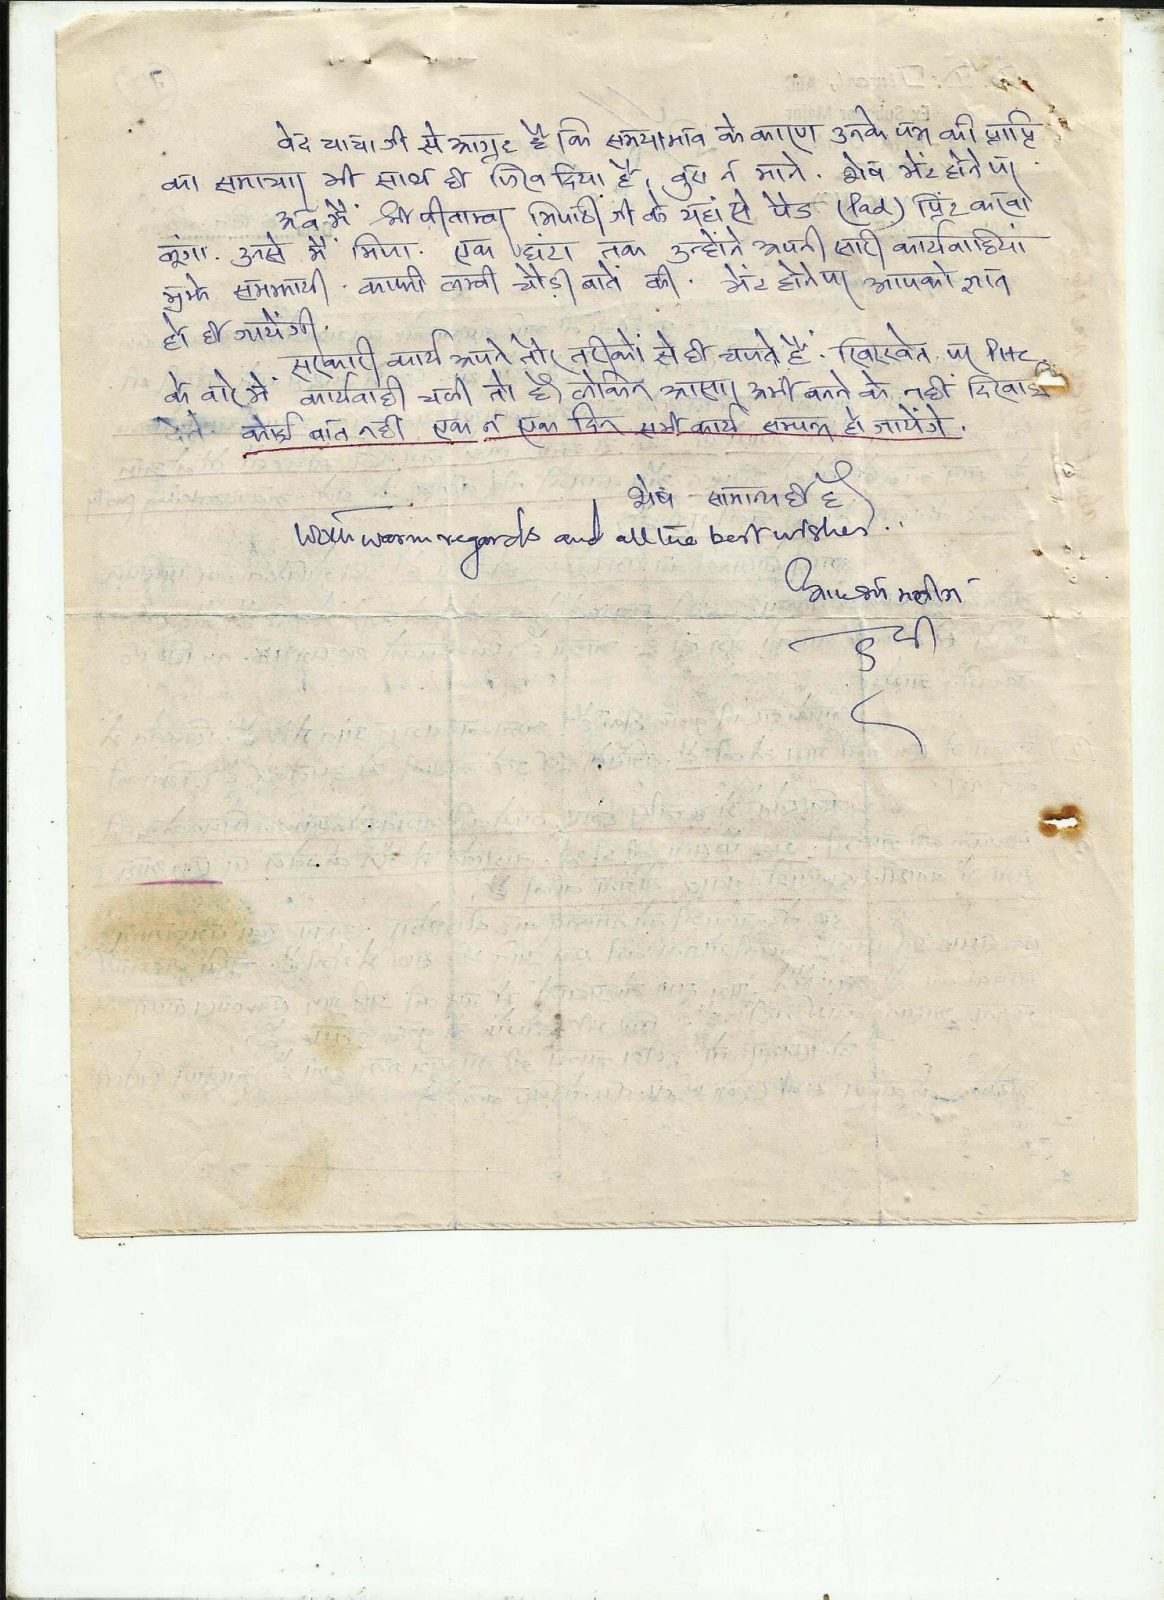 वेद चाचा जी से आग्रह है कि समयाभाव के कारण उनके पत्र की प्राप्ति
का समाचार भी साथ ही लिख दिया है, बुरा न माने. शेष भेंट होने पर.
अब मैं श्री पीताम्बर त्रिपाठी जी के यहां से पैड (Pad) प्रिंट करवा
लूंगा. उनसे मैं मिला. एक घंटा तक उन्होंने अपनी सारी कार्यवाहियां
मुझे समझायी. काफी लम्बी चौड़ी बातें की. भेंट होने पर आपको ज्ञात
हो ही जायेंगी.
सरकारी कार्य अपने तौर तरीकों से ही चलते हैं. पर PHC
के बारे में कार्यवाही चली तो है लेकिन आसार अभी बनने के नहीं दिखाई
देते. कोई बात नहीं एक न एक दिन सभी कार्य सम्पन्न हो जायेंगे.
शेष सामान्य ही है
With warm regards and all the best wishes..
आपका भतीजा